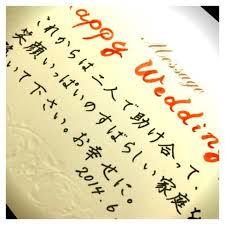 Message
appy Wedding
これからは二人で助け合って、
笑顔いっぱいのすばらしい家庭を
いて下さい。お幸せに。
2014.6